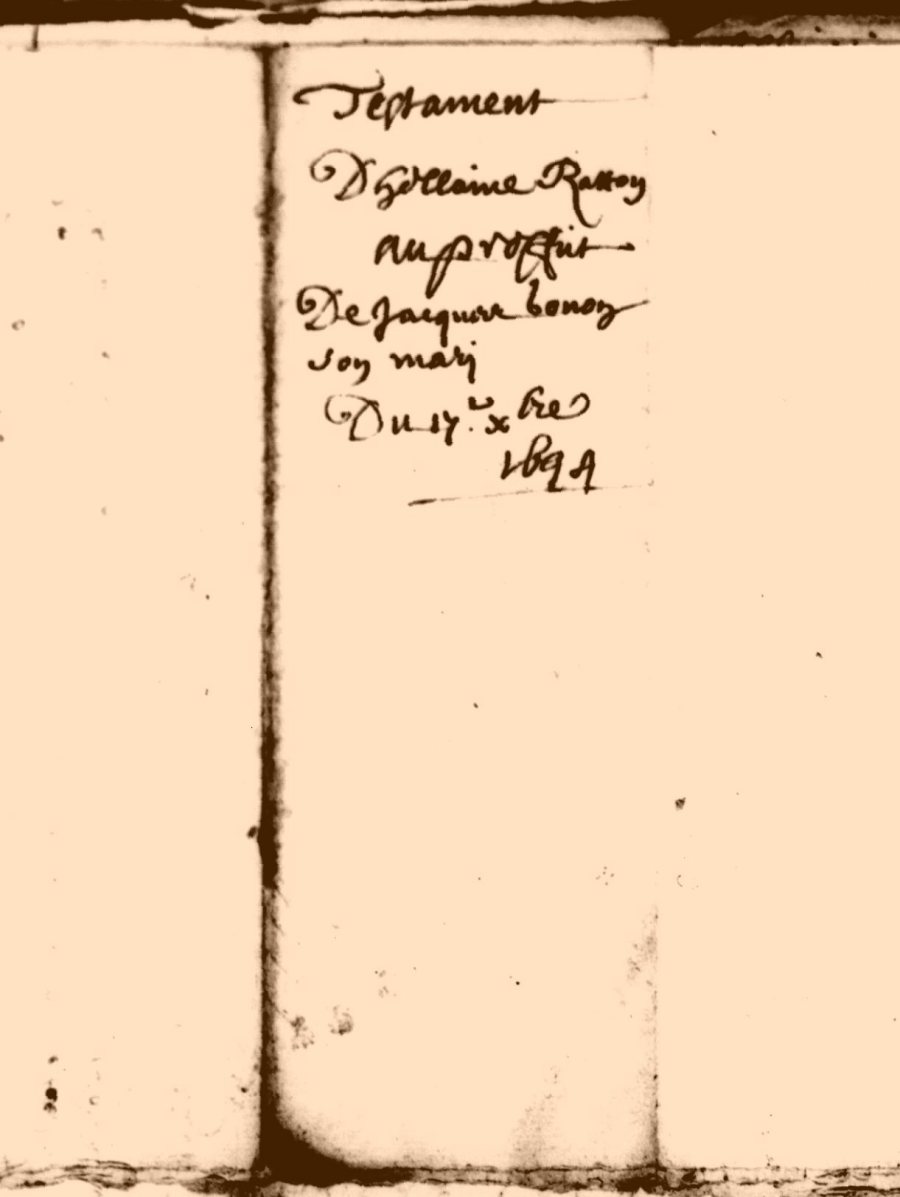 Testament
D Guillaine Ratton
au proffit
De Jacques bonon
son mari
Du 17.e xbre
1694